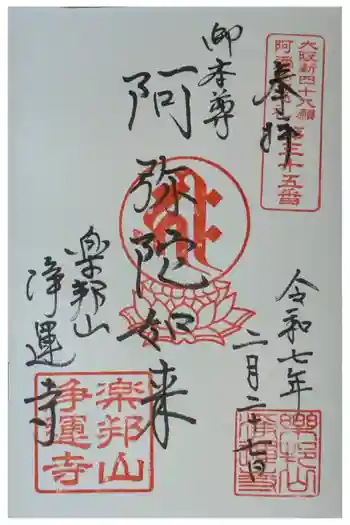 大阪新四十八願
阿弥陀巡礼
第三十五番
奉拝
御本尊
阿弥陀如来
楽邦山
浄運寺
令和七年
二月二十七日
楽邦山
浄運寺